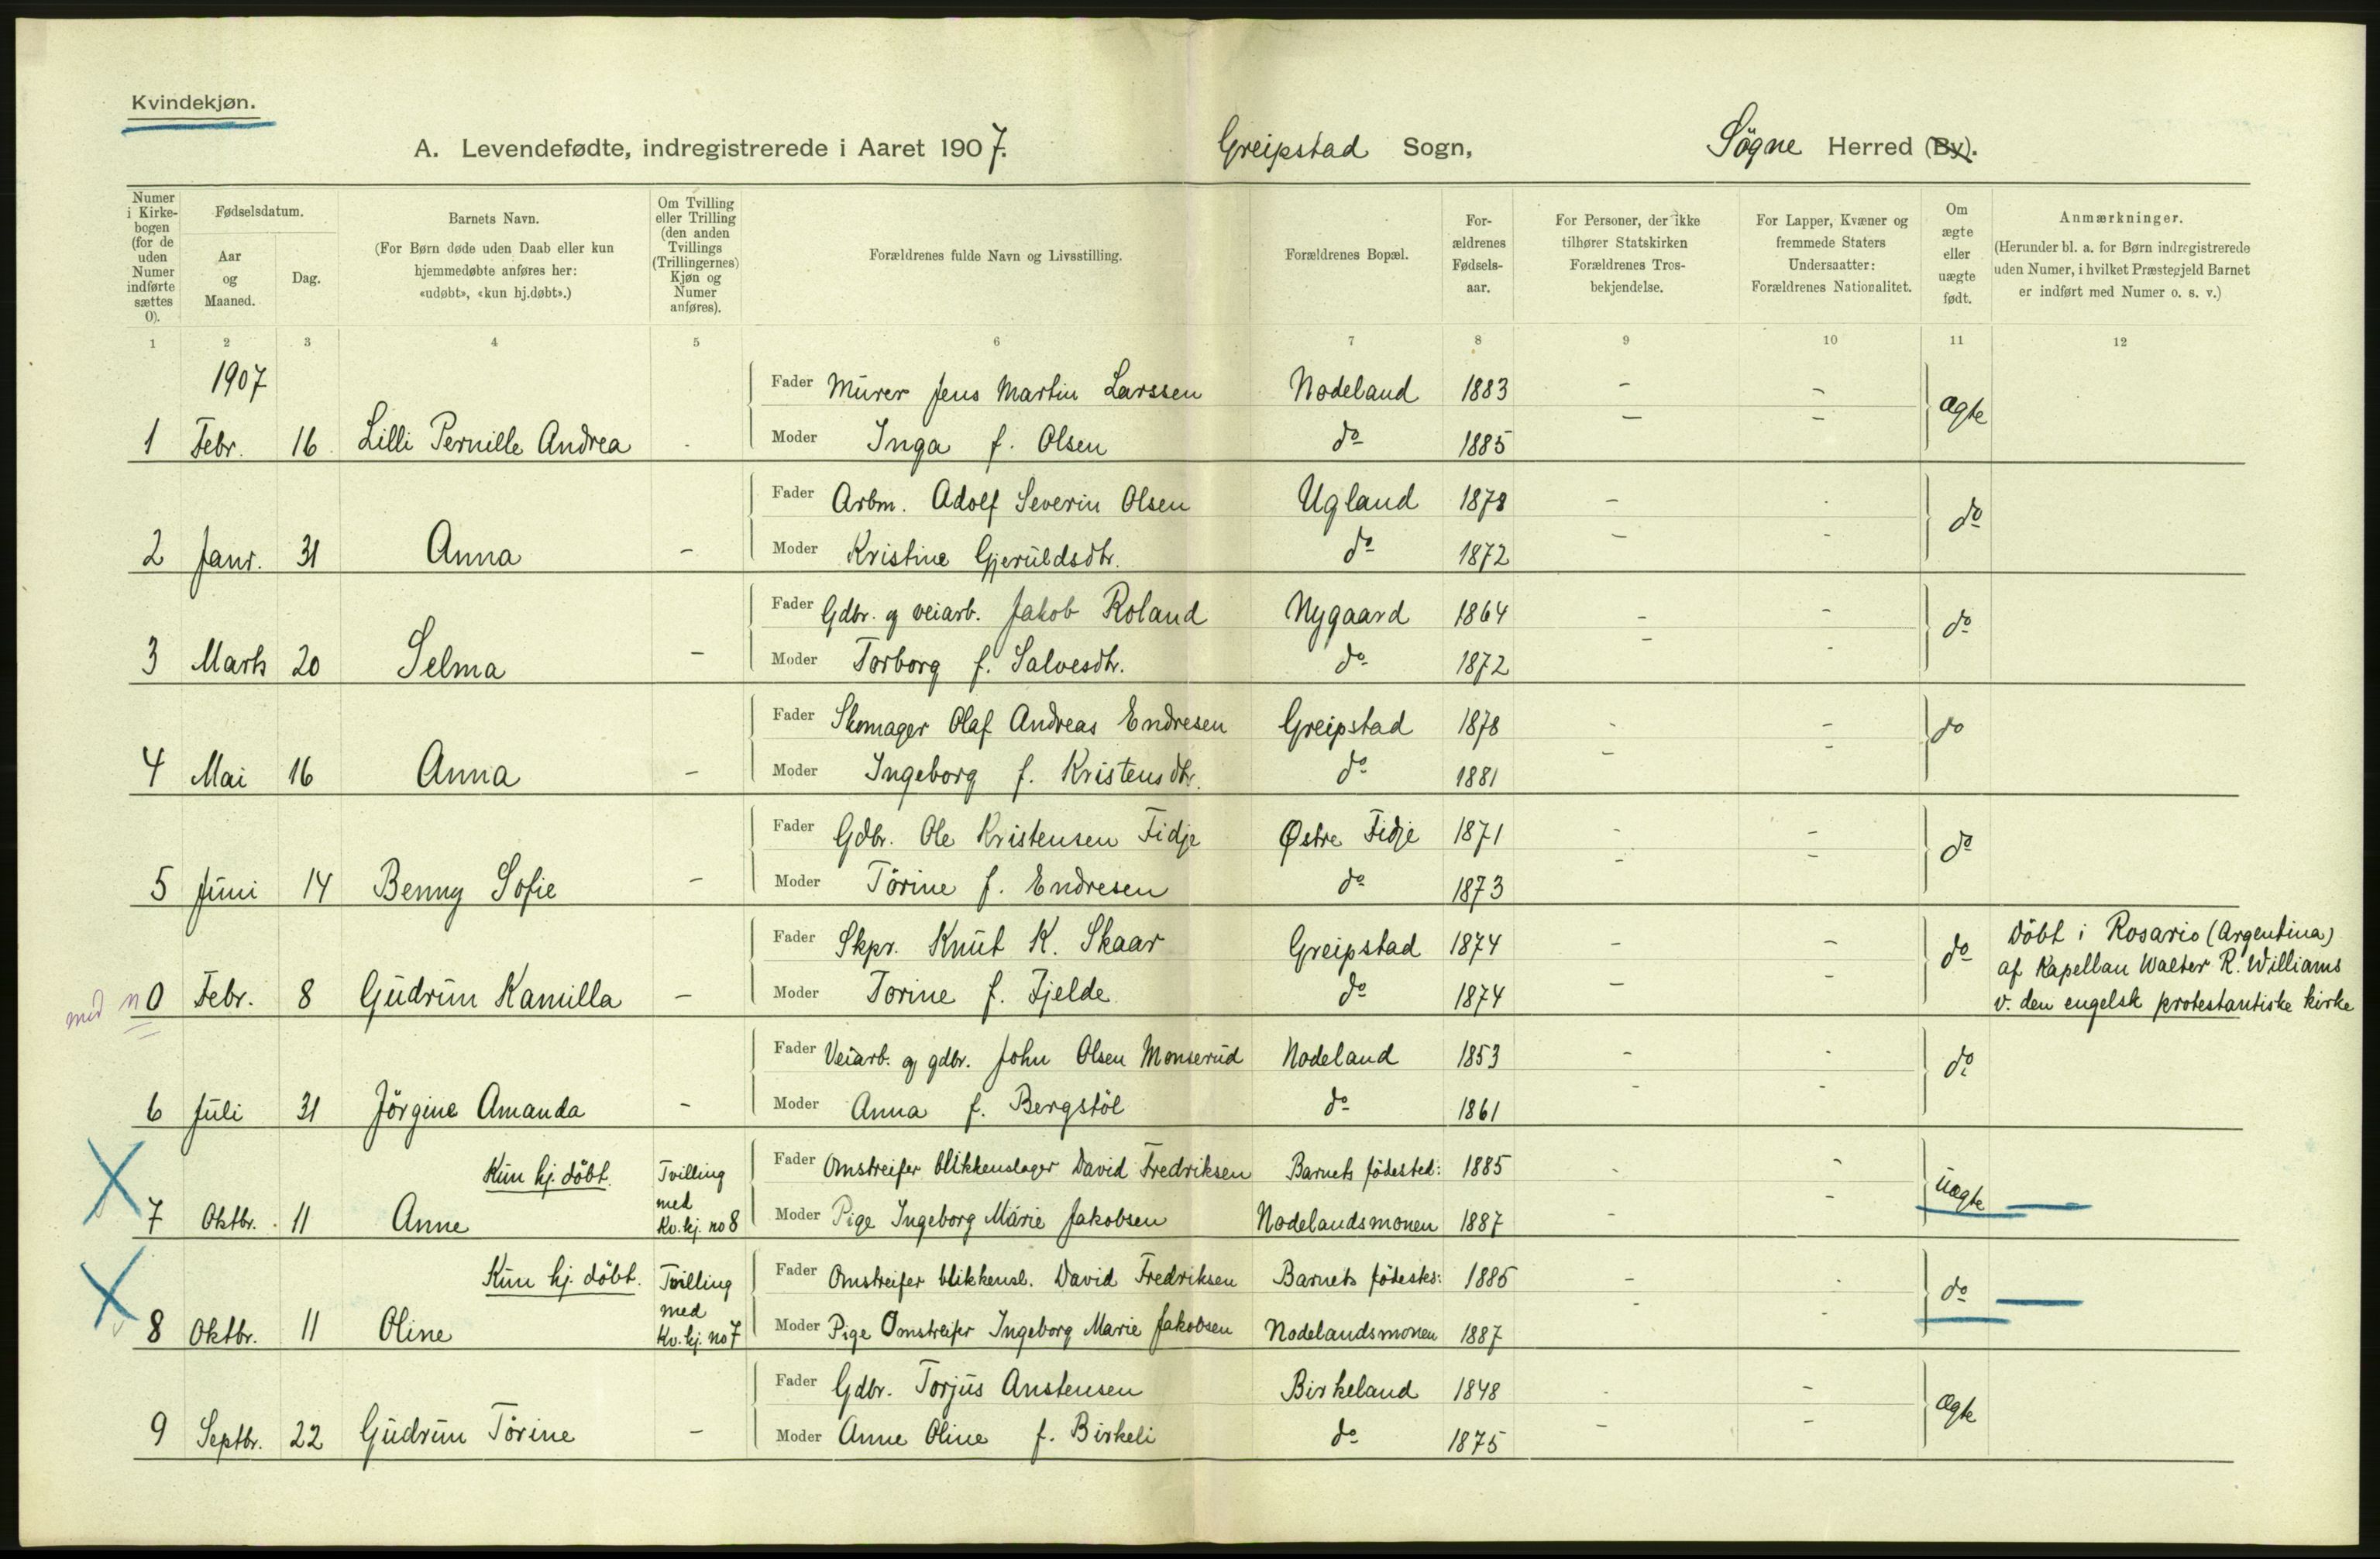 Kvindekjøn.
A. Levendefødte, indregistrerede i Aaret 1907. Greipstad Sogn, Søgne Herred (By).
Numer i Kirkebogen (for de uden Numer indførte sættes 0).
Fødselsdatum.
Aar og Maaned.
Dag.
Barnets Navn.
(For Børn døde uden Daab eller kun hjemmedøbte anføres her: «udøbt», «kun hj.døbt».)
Om Tvilling eller Trilling (den anden Tvillings (Trillingernes) Kjøn og Numer anføres).
Forældrenes fulde Navn og Livsstilling.
Forældrenes Bopæl.
Forældrenes Fødselsaar.
For Personer, der ikke tilhører Statskirken Forældrenes Trosbekjendelse.
For Lapper, Kvæner og fremmede Staters Undersaatter: Forældrenes Nationalitet.
Om ægte eller uægte født.
Anmærkninger.
(Herunder bl. a. for Børn indregistrerede uden Numer, i hvilket Præstegjeld Barnet er indført med Numer o. s. v.)
1 2 3 4 5 6 7 8 9 10 11 12
1907
Fader Murer Jens Martin Larssen Nodeland 1883 - - ægte
1 Febr. 16 Lilli Pernille Andrea - Moder Inga f. Olsen do 1885 - -
Fader Arbm. Adolf Severin Olsen Ugland 1878 - - do
2 Janr. 31 Anna - Moder Kristine Gjeruldsdtr. do 1872 - -
Fader Gdbr. og veiarb. Jakob Roland Nygaard 1864 - - do
3 Marts 20 Selma - Moder Torborg f. Salvesdtr. do 1872 - -
Fader Skomager Olaf Andreas Endresen Greipstad 1878 - - do
4 Mai 16 Anna - Moder Ingeborg f. Kristensdtr. do 1881 - -
Fader Gdbr. Ole Kristensen Fidje Østre Fidje 1871 - - do
5 Juni 14 Benny Sofie - Moder Törine f. Endresen do 1873 - -
Fader Skpr. Knut K. Skaar Greipstad 1874 - - do Döbt i Rosario (Argentina)
af Kapellan Walter R. Williams
med n 0 Febr. 8 Gudrun Kamilla - Moder Torine f. Fjelde do 1874 - - v. den engelsk protestantiske kirke
Fader Veiarb. og gdbr. John Olsen Monserud Nodeland 1853 - - do
6 Juli 31 Jörgine Amanda - Moder Anna f. Bergstöl do 1861 - -
Kun hj. döbt. Tvilling Fader Omstreifer blikkenslager David Fredriksen Barnets födested: 1885 - - uægte
med
7 Oktbr. 11 Anne Kv.kj. no 8 Moder Pige Ingeborg Marie Jakobsen Nodelandsmonen 1887 - -
Kun hj. döbt. Tvilling Fader Omstreifer blikkensl. David Fredriksen Barnets födests: 1885 - - do
med
8 Oktbr. 11 Oline Kv.kj. no 7 Moder Pige Omstreifer Ingeborg Marie Jakobsen Nodelandsmonen 1887 - -
Fader Gdbr. Torjus Anstensen Birkeland 1848 - - ægte
9 Septbr. 22 Gudrun Törine - Moder Anne Oline f. Birkeli do 1875 - -